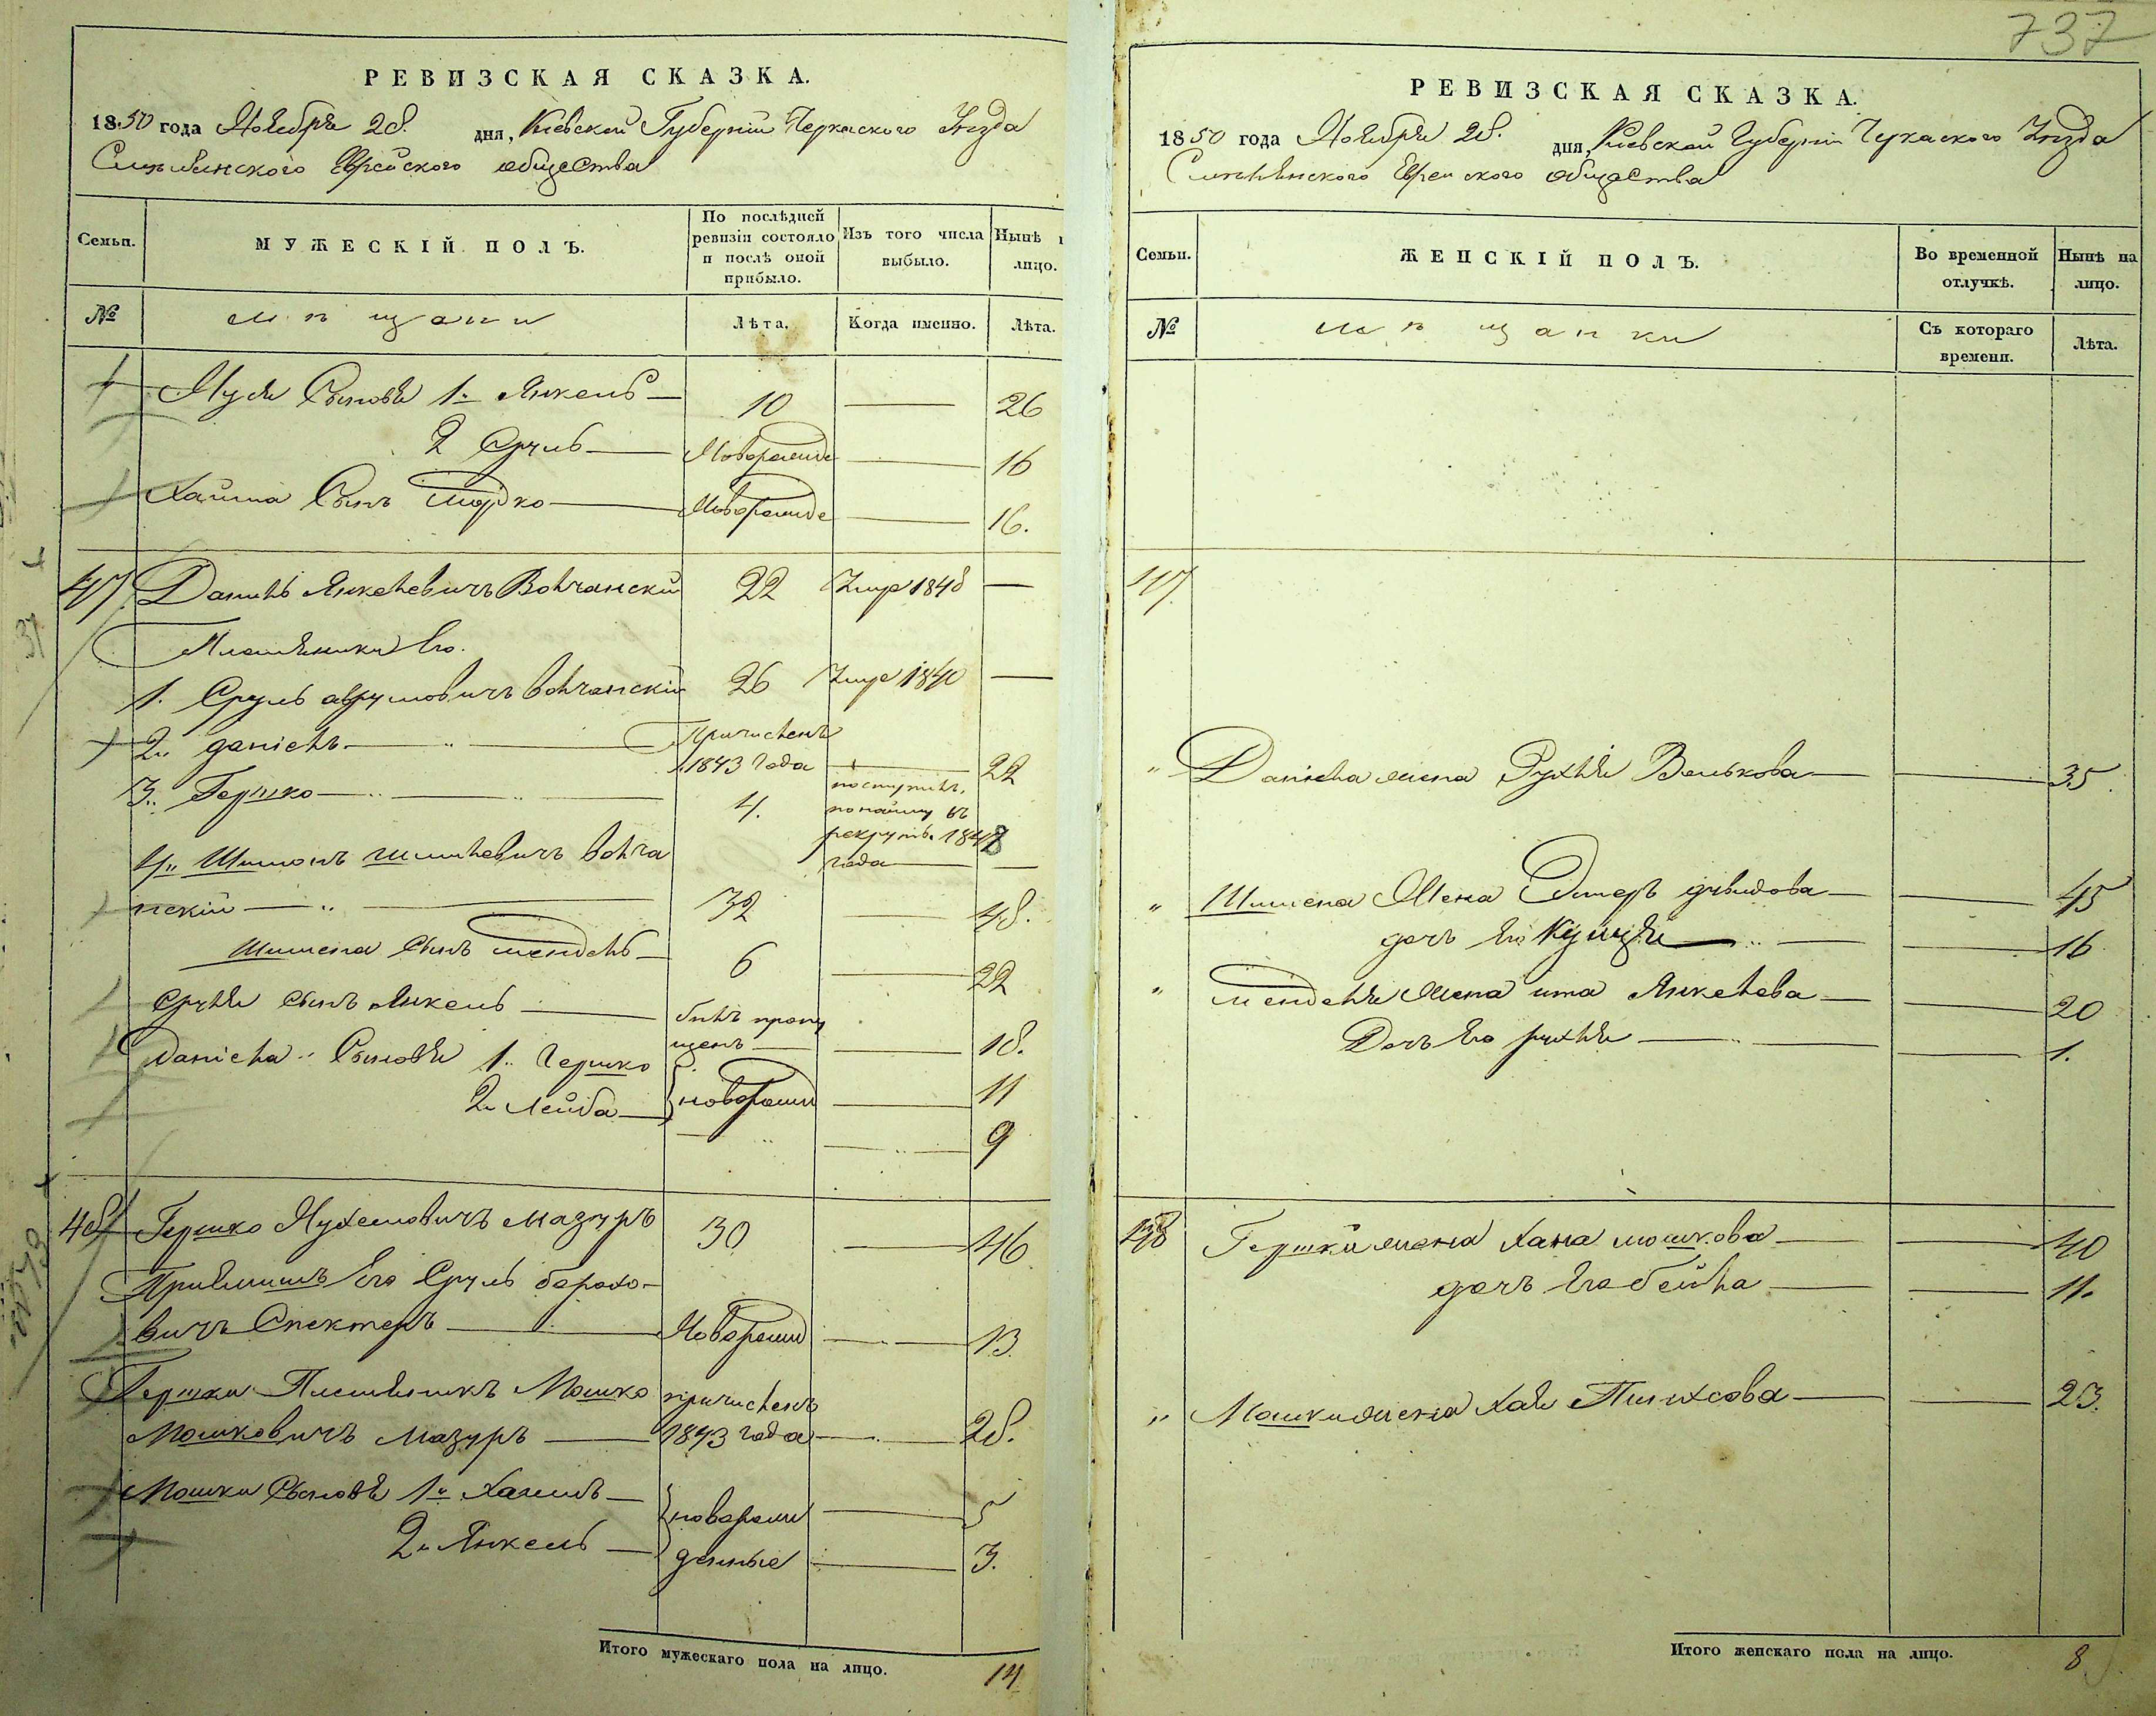 737
РЕВИЗСКАЯ СКАЗКА.
1850 года Ноября 28. дня, Кіевской Губерніи Черкаского Уѣзда
Смѣлянского Еврейского общества
Семьи.
МУЖЕСКІЙ ПОЛЪ.
По послѣдней ревизіи состояло и послѣ оной прибыло.
Изъ того числа выбыло.
Нынѣ лицо.
№
мѣщани
Лѣта.
Когда именно.
Лѣта.
Нуся Сыновя 1. Янкель 10 26
2 Сруль Новорожде 16
Хаима Сынъ Мордко Новорожде 16.
47 Данилъ Янкелевичъ Волчанскій 22 Умре 1848
Племяники Его.
1. Сруль аврумовичъ волчанскій 26 Умре 1840
2. даніелъ Причисленъ 1843 Года 22
3. Гершко 4. поступилъ, по найму въ рекруты. 1848 года
4. Шимонъ шмилевичъ волча
нскій 32 48.
Шимена сынъ мендель 6 22
Сруля сынъ Янкель былъ пропу
щенъ 18.
Даніела Сыновя 1. Гершко новорожд 11
2. Лейба 9
48 Гершко Нухемовичъ Мазуръ 30 46
Приемишъ Его Сруль борохо-
вичъ Спекторъ Новорожд 13
Гершки Племяникъ Мошко причисленъ
Мошковичъ Мазуръ 1843 года 28.
Мошки Сыновя 1. Хаимъ новорож 5
2. Янкель денные 3.
Итого мужескаго пола на лицо. 14
РЕВИЗСКАЯ СКАЗКА.
1850 года Ноября 28. дня, Кіевской Губерніи Черкаского Уѣзда
Смѣлянского Еврейского общества
Семьи.
ЖЕНСКІЙ ПОЛЪ.
Во временной отлучкѣ.
Нынѣ на лицо.
№
мѣщанки
Съ котораго времени.
Лѣта.
47
" Даніела жена Рухля Волькова 35.
" Шимена Жена Эстеръ 45
дочъ Его 16
" менделя Жена ита Янкелева 20
Дочъ Его рухля 1.
48 Гершки жена Хана мошкова 40
дочъ Его бейла 11.
" Мошки жена Хая Пинхсова 23.
Итого женскаго пола на лицо. 8